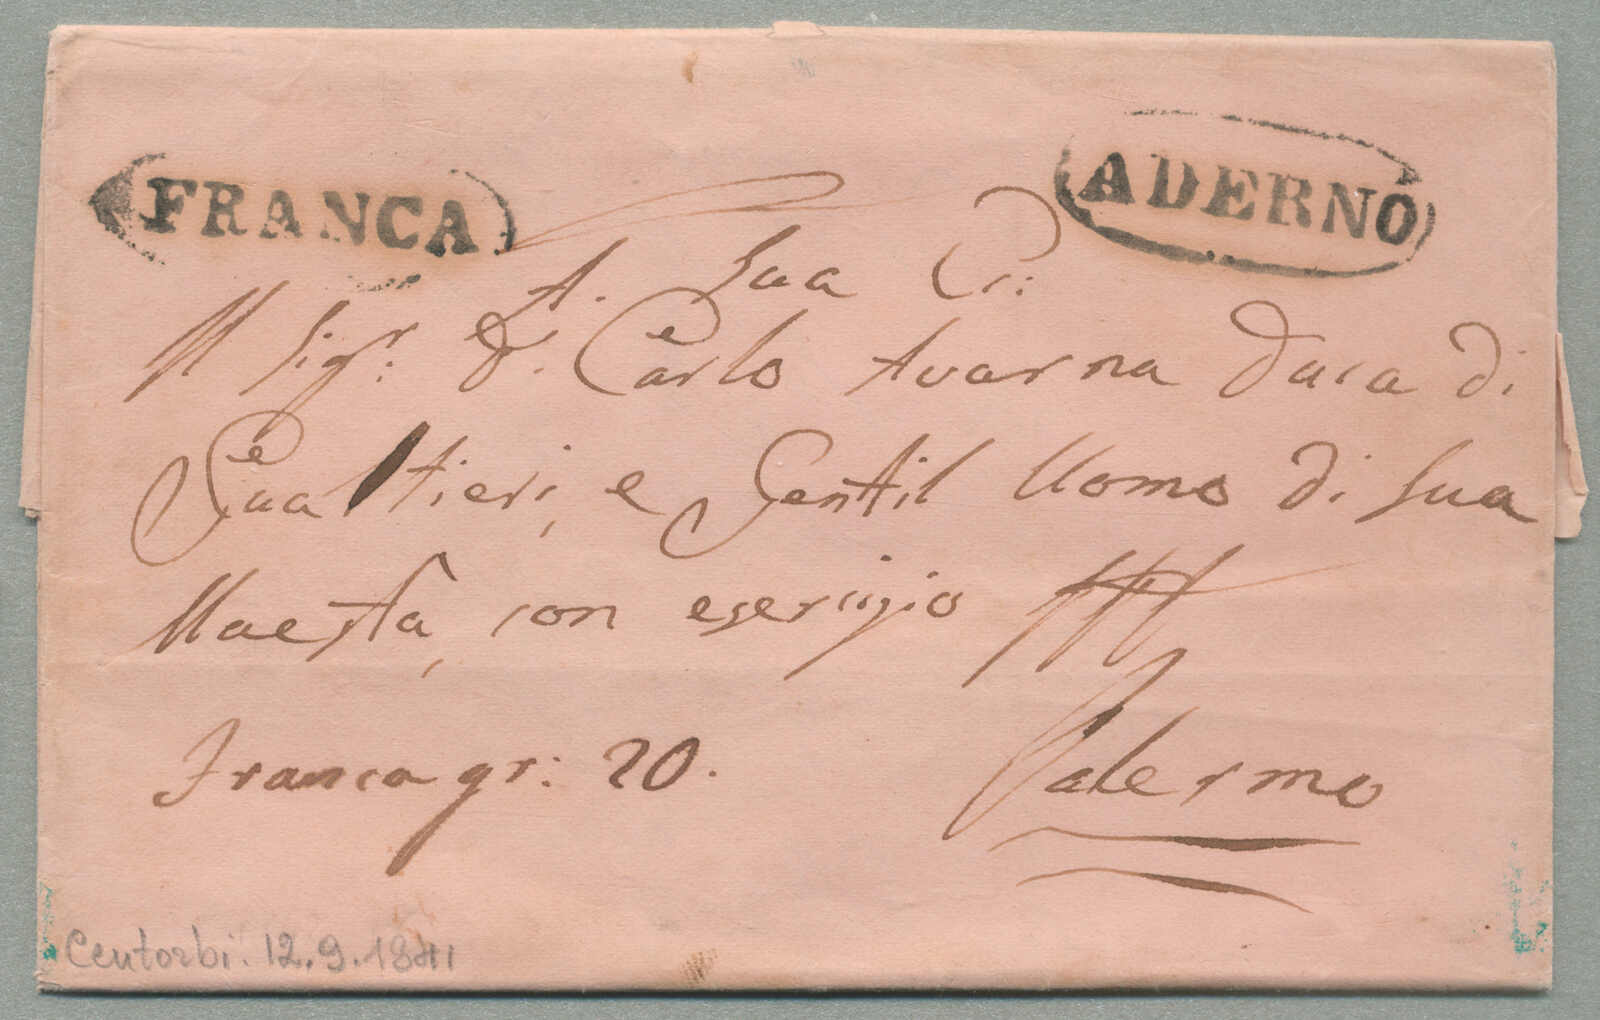 FRANCA
ADERNÒ
A. Sua Ec:
Il Sigr: D. Carlo Avarna Duca di
Gualtieri, e Gentil Uomo di Sua
Maestà, con esercizio
Palermo
Franca gr: 20.
Centorbi. 12.9.1841